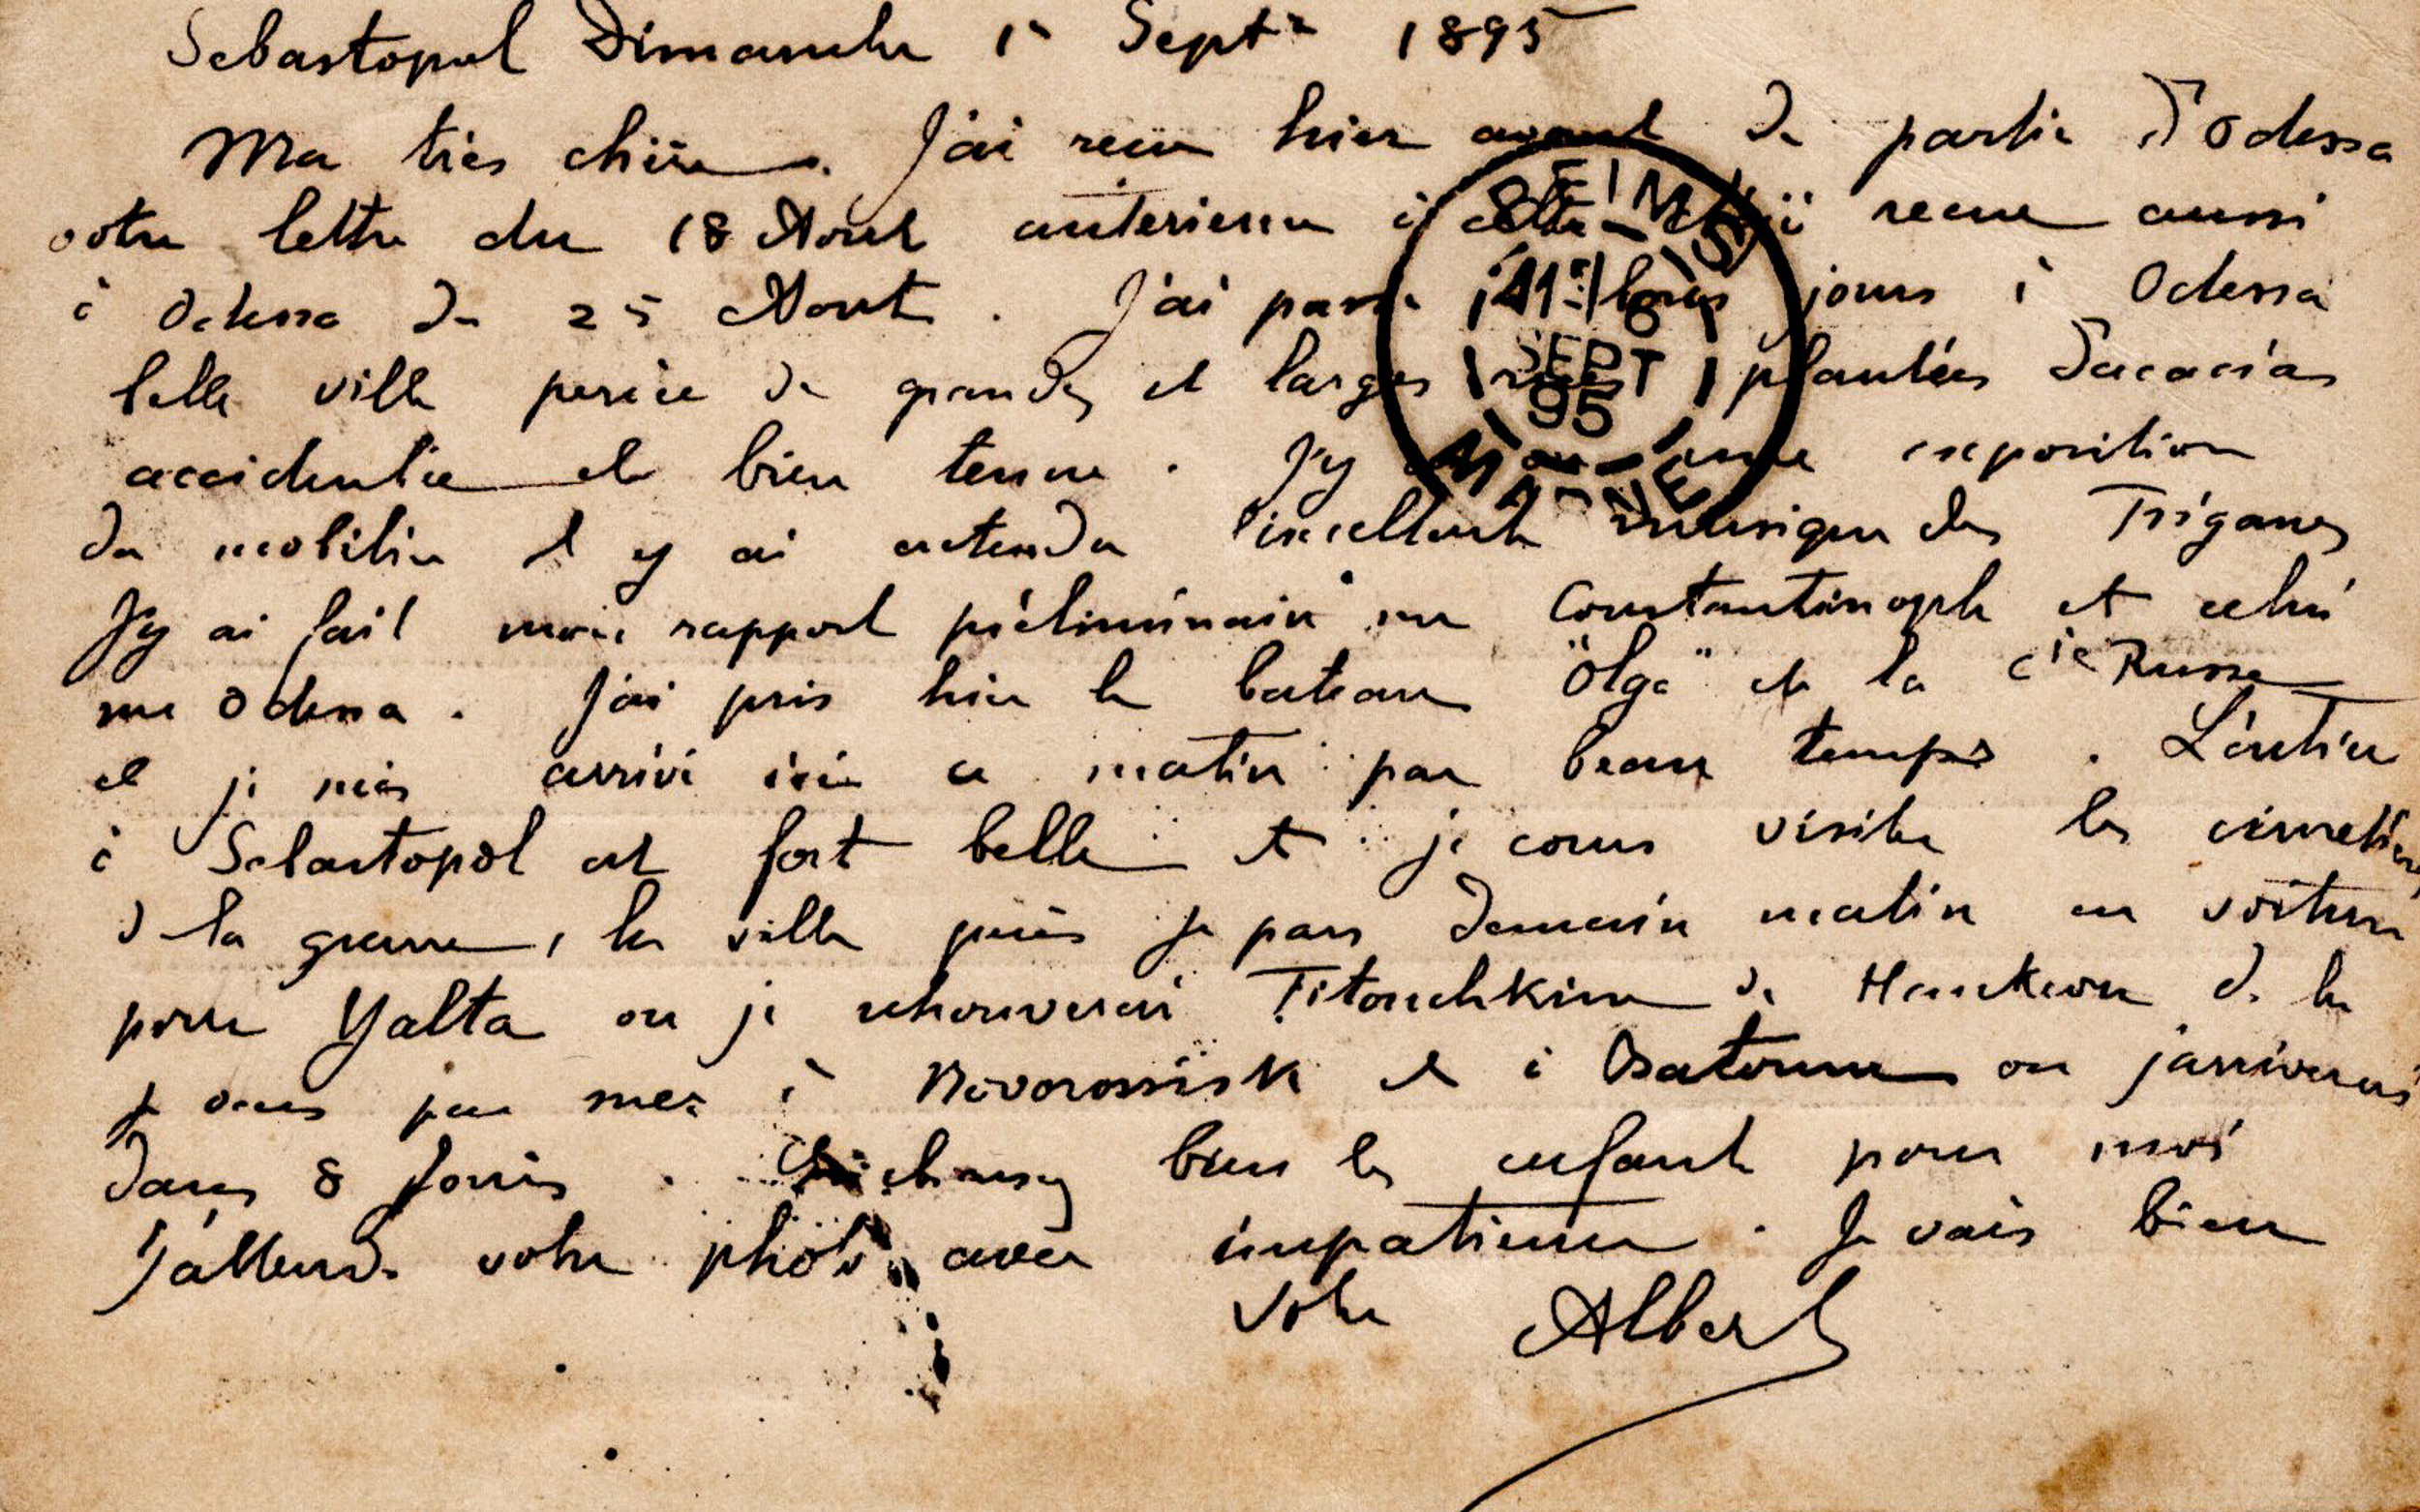 Sebastopol Dimanche 1r Septre 1895
Ma très chère. J'ai reçu hier avant de partir d'Odessa
votre lettre du 18 Aout anterieure à celle reçue aussi
à Odessa du 25 Aout. J'ai passé jours à Odessa
belle ville percée de grandes et larges rues plantées d'acacias
accidentée et bien tenue. J'y ai vu une exposition
du mobilier et y ai entendu l'excellente musique des Tsiganes
J'y ai fait mon rapport préliminaire sur Constantinople et celui
sur Odessa. J'ai pris hier le bateau "Olga" de la Cie Russe
et je suis arrivé ici ce matin par beau temps. L'entrée
à Sebastopol est fort belle et je cours visiter les cimetières
de la guerre, la ville puis je pars demain matin en voiture
pour Yalta ou je retrouverai Titouchkine de Hankeou de la
je vais par mer à Novorossisk et à Batoum ou j'arriverai
dans 8 jours. bien les enfants pour moi
J'attends votre photo avec impatience. Je vais bien
Votre Albert
REIMS
6
SEPT
95
MARNE